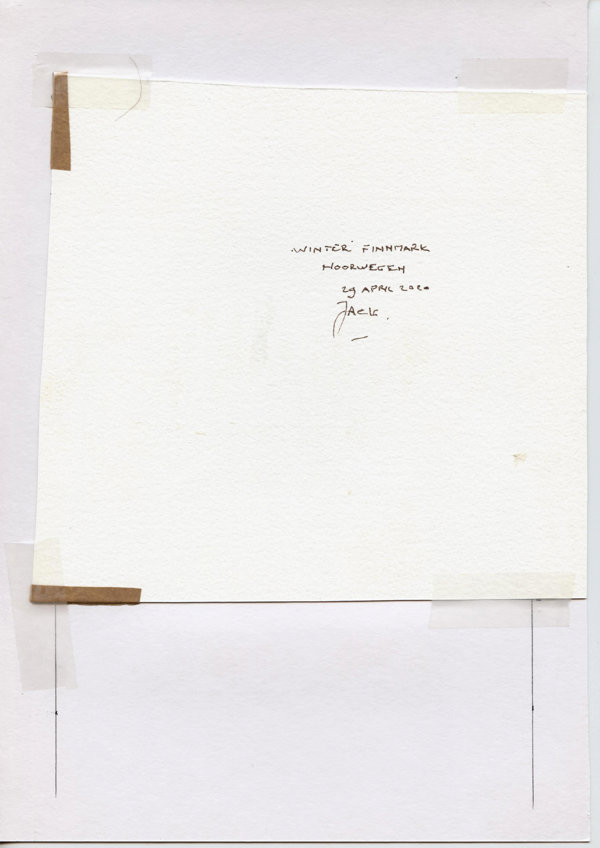 "WINTER" FINNMARK
NOORWEGEN
29 APRIL 2020
JACK.